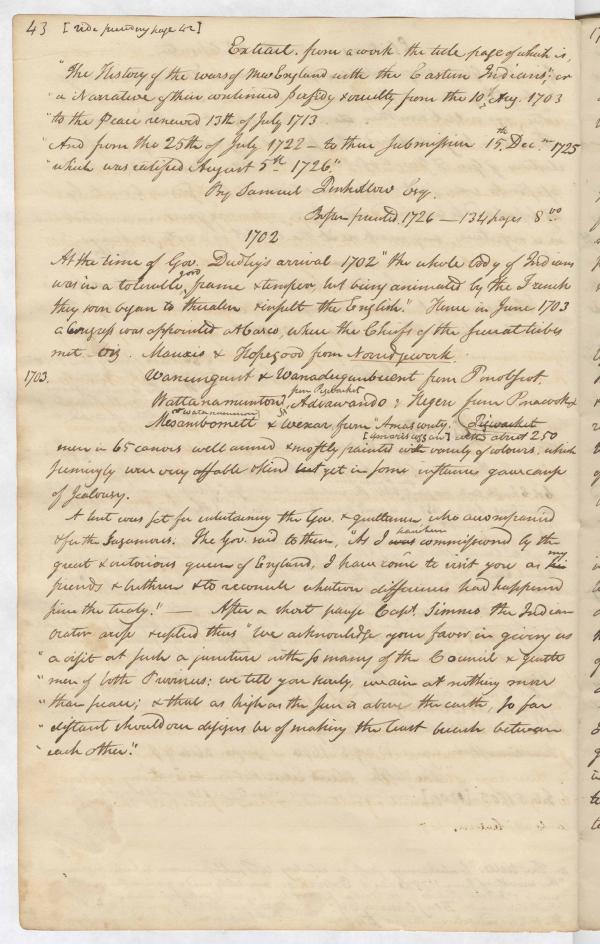 43 [Vide preceding page 42]
Extract from a work the title page of which is,
"The History of the wars of New England with the Eastern Indians", or
"a Narrative of their continued perfidy & cruelty from the 10th Aug. 1703
"to the Peace renewed 13th of July 1713.
"And from the 25th of July 1722 – to their Submission 15th Decr. 1725
"which was ratified August 5th 1726."
By Samuel Penhallow Esqr.
Boston printed 1726 — 134 pages 8vo
1702
At the time of Gov. Dudley's arrival 1702 "the whole body of Indians
was in a tolerable good frame & temper, but being animated by the French
they soon began to threaten & insult the English." Hence in June 1703
a Congress was appointed at Casco, where the Chiefs of the several tribes
met – viz. Mauxis & Hopegood from Noridgwock.
1703. Wanungunt & Wanadugunbuent from Penobscot.
Wattanamunton, from Pigwacket Adiawando & Hegen from Penacook &
Mesambomett & Wexar, from Amasconty.
men in 65 canoes well armed & mostly painted with variety of colours, which
seemingly were very affable & kind but yet in some instances gave cause
of Jealousy.
A tent was set for entertaining the Gov. & gentlemen who accompanied
& for the Sagamores. The Gov. said to them, "As I was have been commissioned by the
great & victorious queen of England, I have come to visit you as his my
friends & brethren & to reconcile whatever differences had happened
since the treaty." — After a short pause Capt. Simmo the Indian
orator arose & replied thus "We acknowledge your favor in giving us
"a visit at such a juncture with so many of the Council & gentle
"men of both Provinces; we tell you surely, we aim at nothing more
"than peace; & that as high as the Sun is above the earth, so far
"distant should our designs be of making the least breach between
"each other."